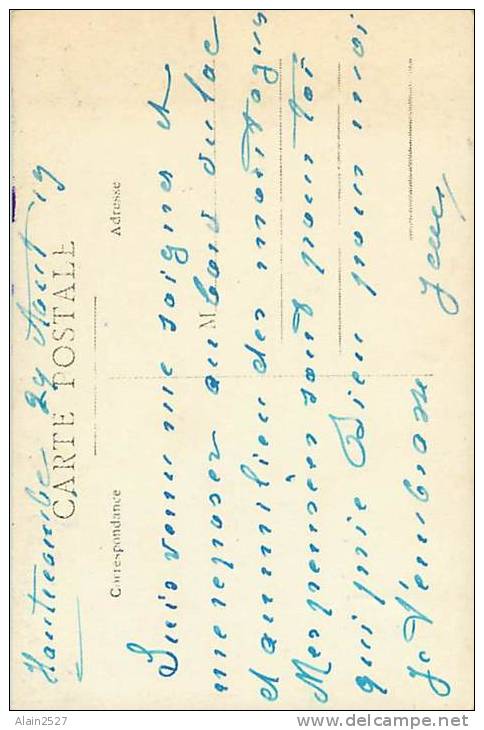 Hautecombe 29 Août 19
CARTE POSTALE
Correspondance
Adresse
M
Suis venu me soigner et
me reposer au bord du lac
et au milieu des montagnes
Mes pensées sont pour toi
qui prie Dieu pour moi
Je t'embrasse
Alain2527
http://www.delcampe.net